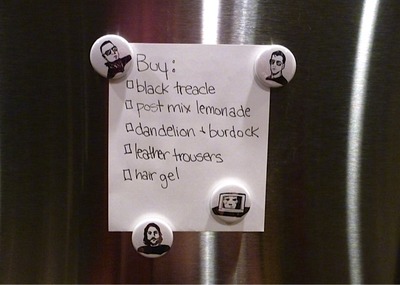 Buy:
black treacle
post mix lemonade
dandelion + burdock
leather trousers
hair gel